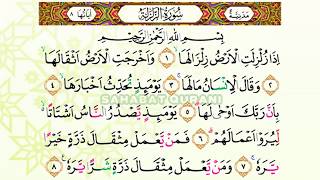 مَدَنِيَّة سُوْرَةُ الزَّلْزَلَةِ اٰيَاتُهَا ٨
بِسْمِ اللّٰهِ الرَّحْمٰنِ الرَّحِيْمِ
اِذَا زُلْزِلَتِ الْاَرْضُ زِلْزَالَهَا ۙ ١ وَاَخْرَجَتِ الْاَرْضُ اَثْقَالَهَا ۙ ٢
وَقَالَ الْاِنْسَانُ مَا لَهَا ۚ ٣ يَوْمَىِٕذٍ تُحَدِّثُ اَخْبَارَهَا ۙ ٤
SAHABAT QURANI
بِاَنَّ رَبَّكَ اَوْحٰى لَهَا ۗ ٥ يَوْمَىِٕذٍ يَّصْدُرُ النَّاسُ اَشْتَاتًا ەۙ
لِّيُرَوْا اَعْمَالَهُمْ ۗ ٦ فَمَنْ يَّعْمَلْ مِثْقَالَ ذَرَّةٍ خَيْرًا
يَّرَهٗ ۚ ٧ وَمَنْ يَّعْمَلْ مِثْقَالَ ذَرَّةٍ شَرًّا يَّرَهٗ ٨